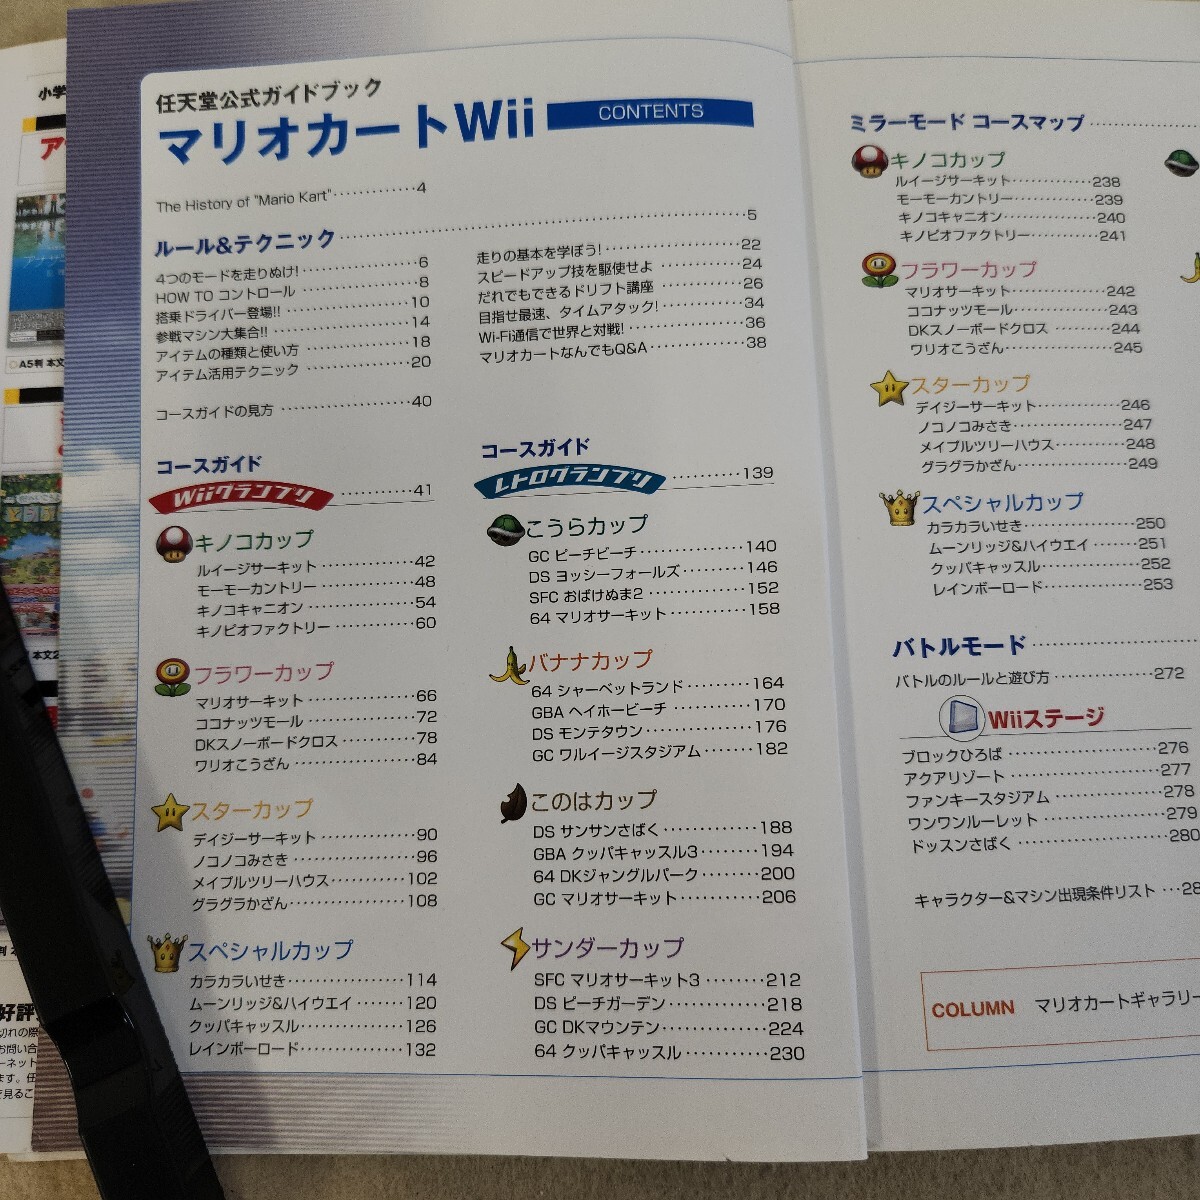 任天堂公式ガイドブック
マリオカートWii
CONTENTS
The History of "Mario Kart"············4
ルール&テクニック············5
4つのモードを走りぬけ!············6
HOW TO コントロール············8
搭乗ドライバー登場!!············10
参戦マシン大集合!!············14
アイテムの種類と使い方············18
アイテム活用テクニック············20
コースガイドの見方············40
走りの基本を学ぼう!············22
スピードアップ技を駆使せよ············24
だれでもできるドリフト講座············26
目指せ最速、タイムアタック!············34
Wi-Fi通信で世界と対戦!············36
マリオカートなんでもQ&A············38
コースガイド
Wiiグランプリ············41
キノコカップ
ルイージサーキット············42
モーモーカントリー············48
キノコキャニオン············54
キノピオファクトリー············60
フラワーカップ
マリオサーキット············66
ココナッツモール············72
DKスノーボードクロス············78
ワリオこうざん············84
スターカップ
デイジーサーキット············90
ノコノコみさき············96
メイプルツリーハウス············102
グラグラかざん············108
スペシャルカップ
カラカラいせき············114
ムーンリッジ&ハイウエイ·······120
クッパキャッスル············126
レインボーロード············132
コースガイド
レトログランプリ············139
こうらカップ
GC ピーチビーチ············140
DS ヨッシーフォールズ············146
SFC おばけぬま2············152
64 マリオサーキット············158
バナナカップ
64 シャーベットランド·········164
GBA ヘイホービーチ············170
DS モンテタウン············176
GC ワルイージスタジアム·······182
このはカップ
DS サンサンさばく············188
GBA クッパキャッスル3········194
64 DKジャングルパーク········200
GC マリオサーキット··········206
サンダーカップ
SFC マリオサーキット3·······212
DS ピーチガーデン············218
GC DKマウンテン············224
64 クッパキャッスル··········230
ミラーモード コースマップ············
キノコカップ
ルイージサーキット············238
モーモーカントリー············239
キノコキャニオン············240
キノピオファクトリー·········241
フラワーカップ
マリオサーキット············242
ココナッツモール············243
DKスノーボードクロス ·······244
ワリオこうざん············245
スターカップ
デイジーサーキット············246
ノコノコみさき············247
メイプルツリーハウス·········248
グラグラかざん············249
スペシャルカップ
カラカラいせき············250
ムーンリッジ&ハイウエイ·······251
クッパキャッスル············252
レインボーロード············253
バトルモード············
バトルのルールと遊び方············272
Wiiステージ
ブロックひろば············276
アクアリゾート············277
ファンキースタジアム············278
ワンワンルーレット············279
ドッスンさばく············280
キャラクター&マシン出現条件リスト···28
COLUMN マリオカートギャラリー
小学
ア
A5判 本文
好評
切れの際
お問い合
ーネット
ます。任
で見るこ